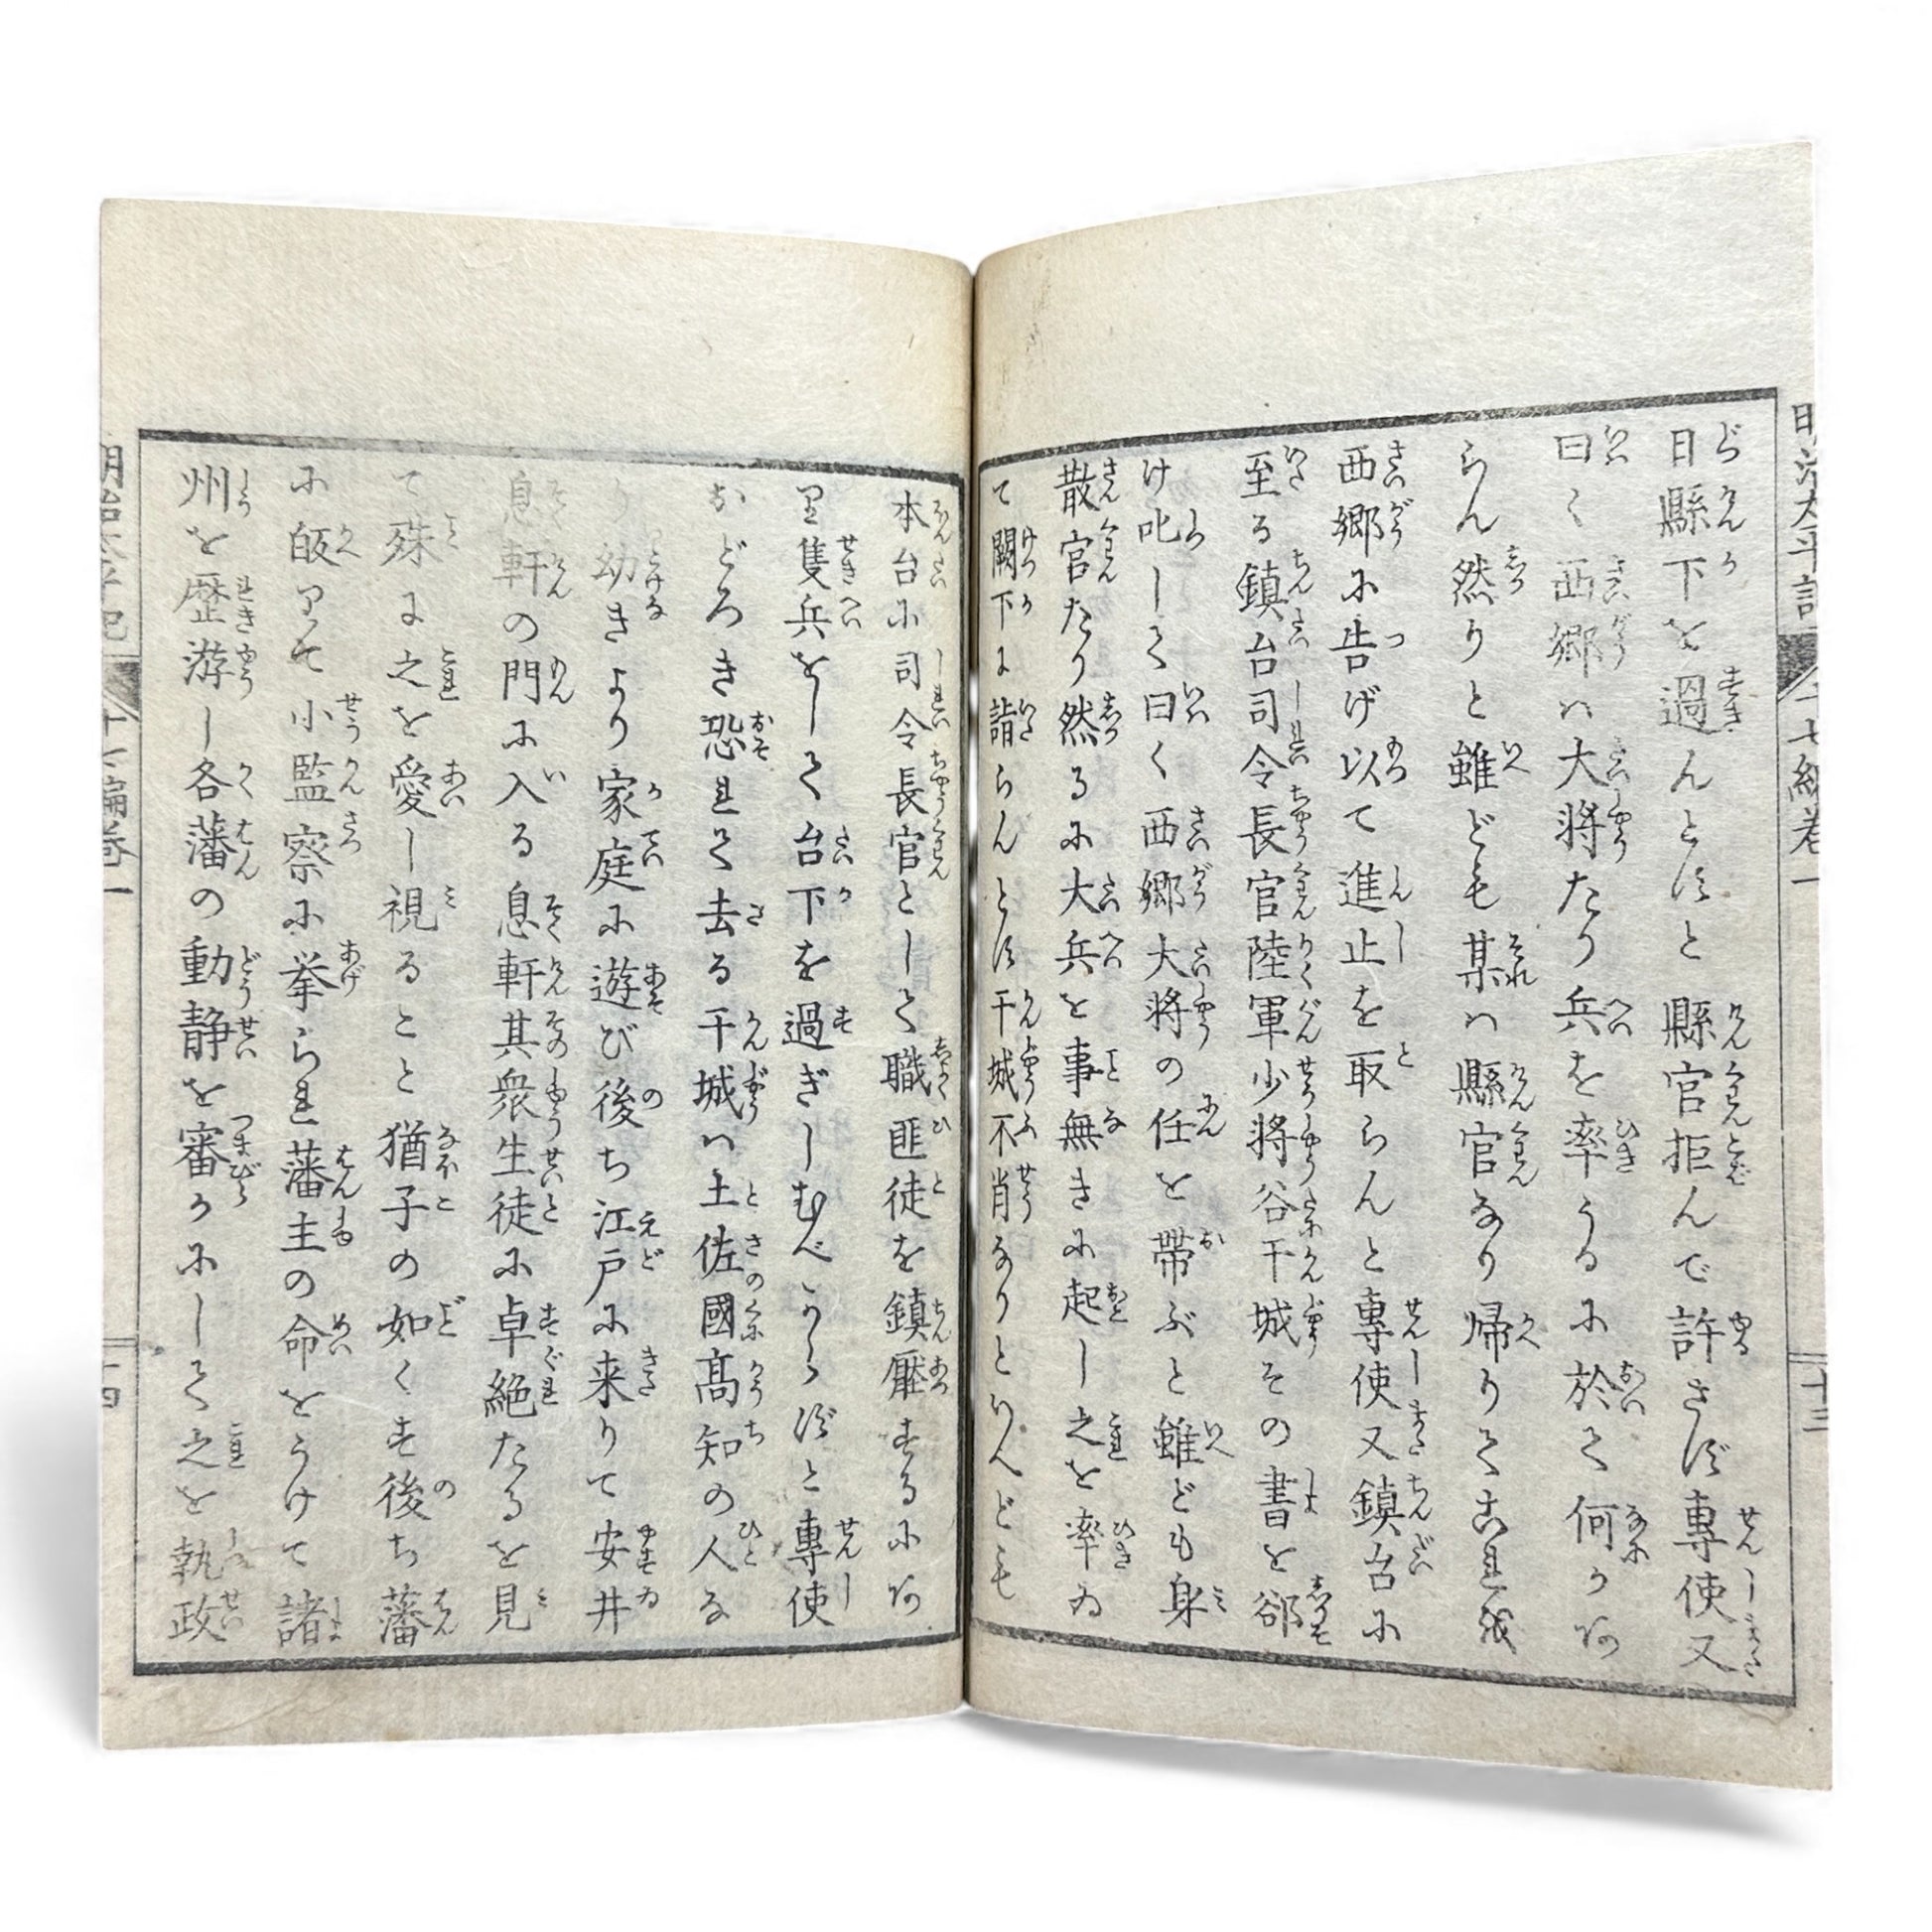 明治太平記 十七編巻一 十三
日縣下を過んとすと縣官拒んで許さず專使又
曰く西郷ハ大将たり兵を率うるに於て何かあ
らん然りと雖ども某ハ縣官なり帰りてこれを
西郷に告げ以て進止を取らんと專使又鎮台に
至る鎮台司令長官陸軍少将谷干城その書を郤
け叱して曰く西郷大将の任を帶ぶと雖ども身
散官たり然るに大兵を事無きに起し之を率ゐ
て闕下に詣らんとす干城不肖なりといへども
本台に司令長官として職匪徒を鎮壓するにあ
り隻兵をして台下を過ぎしむべからずと專使
おどろき恐れて去る干城ハ土佐國髙知の人な
り幼きより家庭に遊び後ち江戸に来りて安井
息軒の門に入る息軒其衆生徒に卓絶たるを見
て殊に之を愛し視ること猶子の如くす後ち藩
に皈りて小監察に挙られ藩主の命をうけて諸
州を歴游し各藩の動静を審かにして之を執政
明治太平記 十七編巻一 十四